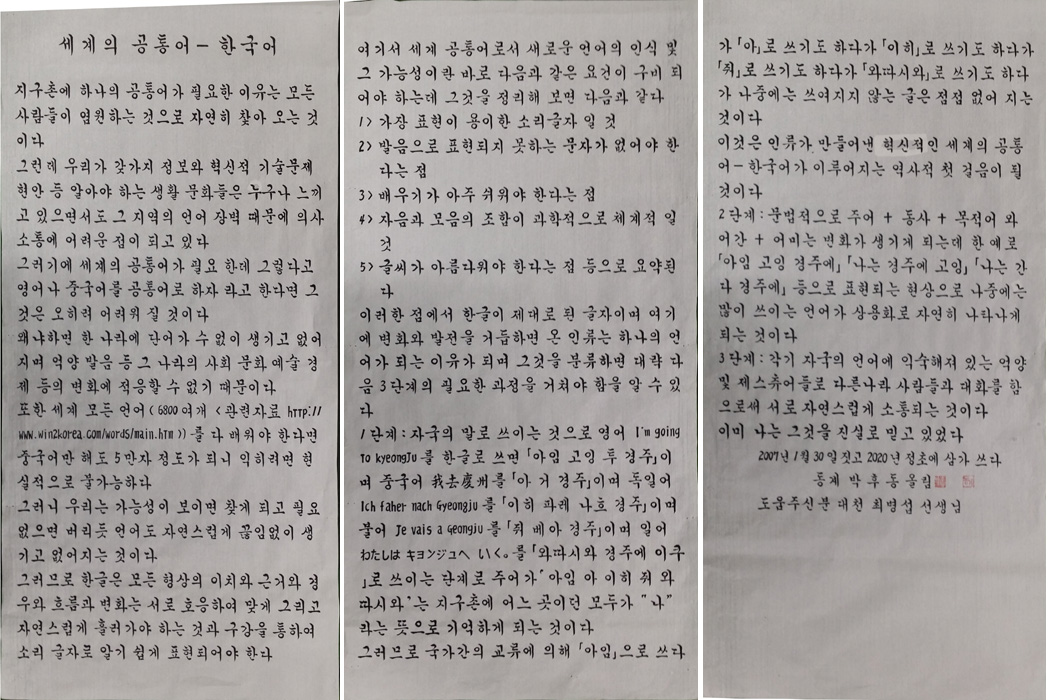 세계의 공통어 - 한국어
지구촌에 하나의 공통어가 필요한 이유는 모든
사람들이 염원하는 것으로 자연히 찾아 오는 것
이다
그런데 우리가 갖가지 정보와 혁신적 기술문제
현안 등 알아야 하는 생활 문화들은 누구나 느끼
고 있으면서도 그 지역의 언어 장벽 때문에 의사
소통에 어려운 점이 되고 있다
그러기에 세계의 공통어가 필요 한데 그렇다고
영어나 중국어를 공통어로 하자 라고 한다면 그
것은 오히려 어려워 질 것이다
왜냐하면 한 나라에 단어가 수 없이 생기고 없어
지며 억양 발음 등 그 나라의 사회 문화 예술 경
제 등의 변화에 적응할 수 없기 때문이다
또한 세계 모든 언어 ( 6800 여개 < 관련자료 http://
www.win2korea.com/words/main.htm >) -를 다 배워야 한다면
중국어만 해도 5만자 정도가 되니 익히려면 현
실적으로 불가능하다
그러니 우리는 가능성이 보이면 찾게 되고 필요
없으면 버리듯 언어도 자연스럽게 끊임없이 생
기고 없어지는 것이다
그러므로 한글은 모든 형상의 이치와 근거와 경
우와 흐름과 변화는 서로 호응하여 맞게 그리고
자연스럽게 흘러가야 하는 것과 구강을 통하여
소리 글자로 알기 쉽게 표현되어야 한다
여기서 세계 공통어로서 새로운 언어의 인식 및
그 가능성이란 바로 다음과 같은 요건이 구비 되
어야 하는데 그것을 정리해 보면 다음과 같다
1) 가장 표현이 용이한 소리글자 일 것
2) 발음으로 표현되지 못하는 문자가 없어야 한
다는 점
3) 배우기가 아주 쉬워야 한다는 점
4) 자음과 모음의 조합이 과학적으로 체계적 일
것
5) 글씨가 아름다워야 한다는 점 등으로 요약된
다
이러한 점에서 한글이 제대로 된 글자이며 여기
에 변화와 발전을 거듭하면 온 인류는 하나의 언
어가 되는 이유가 되며 그것을 분류하면 대략 다
음 3단계의 필요한 과정을 거쳐야 함을 알 수 있
다
1단계 : 자국의 말로 쓰이는 것으로 영어 I'm going
to kyeongju 를 한글로 쓰면 「아임 고잉 투 경주」이
며 중국어 我去慶州를 「아 거 경주」이며 독일어
Ich faher nach Gyeongju 를 「이히 파레 나흐 경주」이며
불어 Je vais a Geongju 를 「쥐 베아 경주」이며 일어
わたしは キョンジュへ いく。를 「와따시와 경주에 이쿠
」로 쓰이는 단계로 주어가 '아임 아 이히 쥐 와
따시와'는 지구촌에 어느 곳이던 모두가 "나"
라는 뜻으로 기억하게 되는 것이다
그러므로 국가간의 교류에 의해 「아임」으로 쓰다
가 「아」로 쓰기도 하다가 「이히」로 쓰기도 하다가
「쥐」로 쓰기도 하다가 「와따시와」로 쓰기도 하다
가 나중에는 쓰여지지 않는 글은 점점 없어 지는
것이다
이것은 인류가 만들어낸 혁신적인 세계의 공통
어 - 한국어가 이루어지는 역사적 첫 걸음이 될
것이다
2단계 : 문법적으로 주어 + 동사 + 목적어 와
어간 + 어미는 변화가 생기게 되는데 한 예로
「아임 고잉 경주에」「나는 경주에 고잉」「나는 간
다 경주에」 등으로 표현되는 현상으로 나중에는
많이 쓰이는 언어가 상용화로 자연히 나타나게
되는 것이다
3단계 : 각기 자국의 언어에 익숙해져 있는 억양
및 제스츄어들로 다른나라 사람들과 대화를 함
으로써 서로 자연스럽게 소통되는 것이다
이미 나는 그것을 진실로 믿고 있었다
2007년 1월 30일 짓고 2020년 정초에 삼가 쓰다
동계 박 후 동 올림
도움주신분 대천 최명섭 선생님